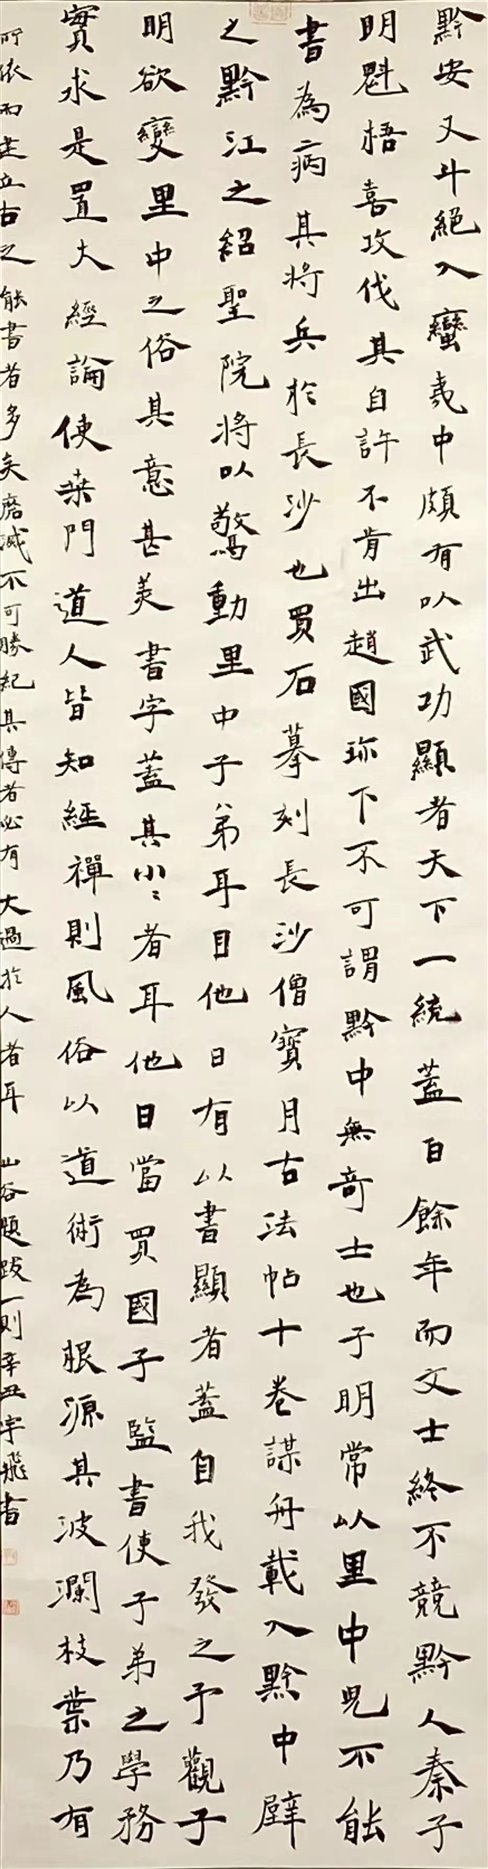 黔安又斗絕入蠻夷中頗有以武功顯者天下一統蓋百餘年而文士終不競黔人秦子
明魁梧喜攻伐其自許不肯出趙國珎下不可謂黔中無奇士也子明常以里中兒不能
書為病其將兵於長沙也買石摹刻長沙僧寶月古法帖十卷謀舟載入黔中壁
之黔江之紹聖院將以驚動里中子弟耳目他日有以書顯者蓋自我發之予觀子
明欲變里中之俗其意甚美書字蓋其小小者耳他日當買國子監書使子弟之學務
實求是置大經論使桑門道人皆知經禪則風俗以道術為根源其波瀾枝葉乃有
所依而建立古之能書者多矣磨滅不可勝紀其傳者必有大過於人者耳 山谷題跋一則辛丑宇飛書